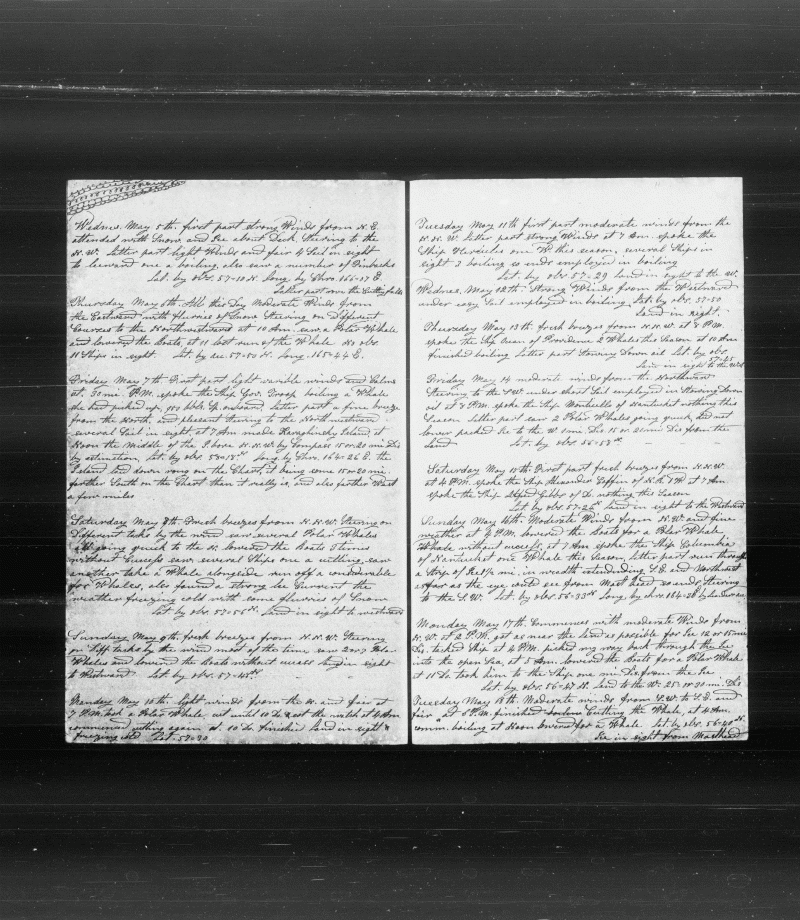 Wednes. May 5th. first part strong Winds from N.E.
attended with Snow and Ice about Deck, Steering to the
N.W. latter part light Winds and fair 4 Sail in sight
to leeward one a boiling, also saw a number of Finbacks
Lat. by obs. 57-10 N. Long. by Chro. 166-17 E
Latter part over the Cutting falls
Thursday May 6th. All this Day Moderate Winds from
the Eastward with flurries of Snow Steering on Different
Courses to the Northwestward at 10 Am. saw a Polar Whale
and lowered the Boats, at 11 lost run of the Whale No obs.
11 Ships in sight Lat. by acc. 57-50 N. Long. 165-44 E.
Friday May 7th. First part light varible winds and Calms
at, 30 mi. P.M. spoke the Ship Gov. Troop boiling a Whale
she had picked up, bbls. Sp. onboard, Latter part a fine breeze
from the North, and pleasent Steering to the Northwestward
several Sail in sight at 7 Am. made Island, at
Noon the Middle of the I. bore N.N.W. by Compass 15 or 20 mi. Dis
by estimation, Lat. by obs. 58-18 N. Long. by Chro. 164-26 E. the
Island laid down rong on the Chart, it being some 15 or 20 mi.
farther South on the Chart then it really is, and also farther West
a few miles
Saturday May 8th. Fresh breezes from N.N.W. Steering on
Different tacks by the wind saw several Polar Whales
all going quick to the N. lowered the Boats times
without Success saw several Ships one a cutting, saw
another take a Whale alongside run off a considerable
for Whales, also found a strong Current the
weather freezing cold with some flurries of Snow
Lat. by obs. 57-56 N. Land in sight to westward
Sunday May 9th. fresh breezes from N.N.W. Steering
on Diff tacks by the wind most of the time saw 2 or 3 Polar
Whales and lowered the Boats without success land in sight
to Westward Lat. by obs. 57-45 N
Monday May 10th. light winds from the N. and fair at
7 P.M. took a Polar Whale, cut until 10 Do. set the watch at 4 Am
commenced cutting again at 10 Do. finished land in sight
freezing cold Lat. 57-20
Tuesday May 11th first part moderate winds from the
N.N.W. latter part strong Winds at 7 Am. spoke the
Ship Hercules one Wh this season, several Ships in
sight 3 boiling so ends employed in boiling
Lat. by obs 57-29 Land in sight to the W.
Wednes. May 12th. Strong Winds from the Westward
under easy Sail employed in boiling, Lat. by obs. 57-50
Land in sight.
Thursday May 13th fresh breezes from N.N.W. at 8 P.M.
spoke the Ship of Providence 2 Whales this Season at 10 Am
finished boiling latter part Stowing Down oil Lat. by obs.
57-45
Land in sight to the Wd
Friday May 14 moderate winds from the Northward
Steering to the SW under short Sail employed in Stowing Down
oil at 8 P.M. spoke the Ship Monticello of Nantucket nothing this
Season latter part saw 2 Polar Whales going quick, did not
lower packed Ice to the W. one Dis 15 or 20 mi. Dis from the
Land Lat. by obs. 56-58 N.
Saturday May 15th First part fresh breezes from N.N.W.
at 4 P.M. spoke the Ship Alexander Coffin of N. 1 Wh at 7 Am
spoke the Ship Alfred Gibbs of Do. nothing this Season
Lat. by obs. 57-24 Land in sight to the Westward
Sunday May 16th. Moderate Winds from N.W. and fine
weather at 4 P.M. lowered the boats for a Polar Whale
Whale without success, at 7 Am. spoke the Ship Columbia
of Nantucket one Whale this Season, latter part run through
a strip of Ice 1½ mi. in width extendending S.E. and Northwest
as far as the eye could see from Mast head so ends Steering
to the S.W. Lat. by obs. 56-33 N Long. by chro. 164-58
Monday May 17th. Commences with moderate Winds from
N.W. at 2 P.M. got as near the land as possible for Ice 12 or 15 mi
Dis. tacked Ship at 4 P.M. picked my way back through the Ice
into the open Sea, at 5 Am. lowered the Boats for a Polar Whale
at 11 Do. took him to the Ship one mi. Dis from the Ice
Lat. by obs. 56-47 N. Land to the W. 25 or 30 mi. Dis
Tuesday May 18th. Moderate winds from S.W. to S.E. and
fair at 6 P.M. finished Cutting the Whale, at 4 Am.
comm. boiling at Noon lowered for a Whale Lat. by obs. 56-40 N.
Ice in sight from Masthead